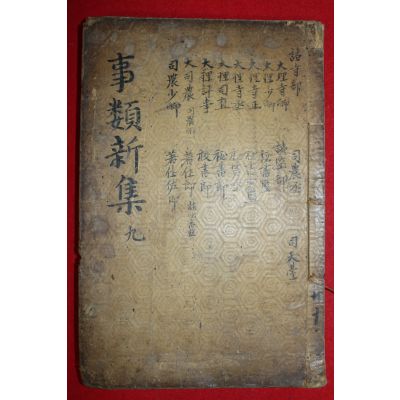 諸寺部
大理寺卿
大理少卿
大理寺正
大理寺丞
大理司直
大理評事
大司農
司農少卿
司農丞
諸監部
秘書監
秘書郎
校書郎
著作郎
著作佐郎
司天臺
事類新集 九